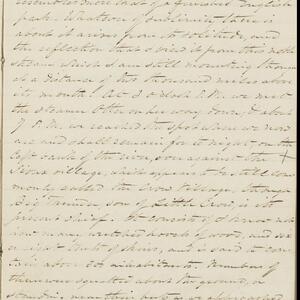 resembles more that of a finished English
park. Whatever of sublimity there is
about it arises from the solitude, and
the reflection that derived upon this noble
stream which I am still mounting though
at a distance of two thousand miles above
its mouth. At 3 o'clock P.M. we met
the steamer Otter on her way down, & about
7 P.M. we reached the spot where we now
are and shall remain for the night on the
left bank of the river, over against the
Sioux village, which appears to be still com-
monly called the Crow Village, though
Big Thunder son of Little Crow, is its
present chief. It consists of I know not
how many wretched hovels of wood, and
or eight tents of skins, and is said to con-
tain about 200 inhabitants. Numbers of
them were squatted about the ground, or
standing near their huts as we